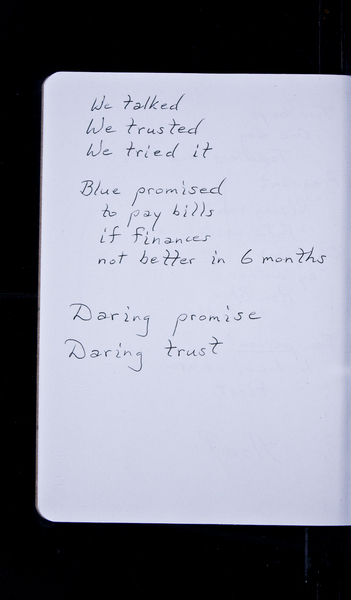 We talked
We trusted
We tried it
Blue promised
to pay bills
if finances
not better in 6 months
Daring promise
Daring trust